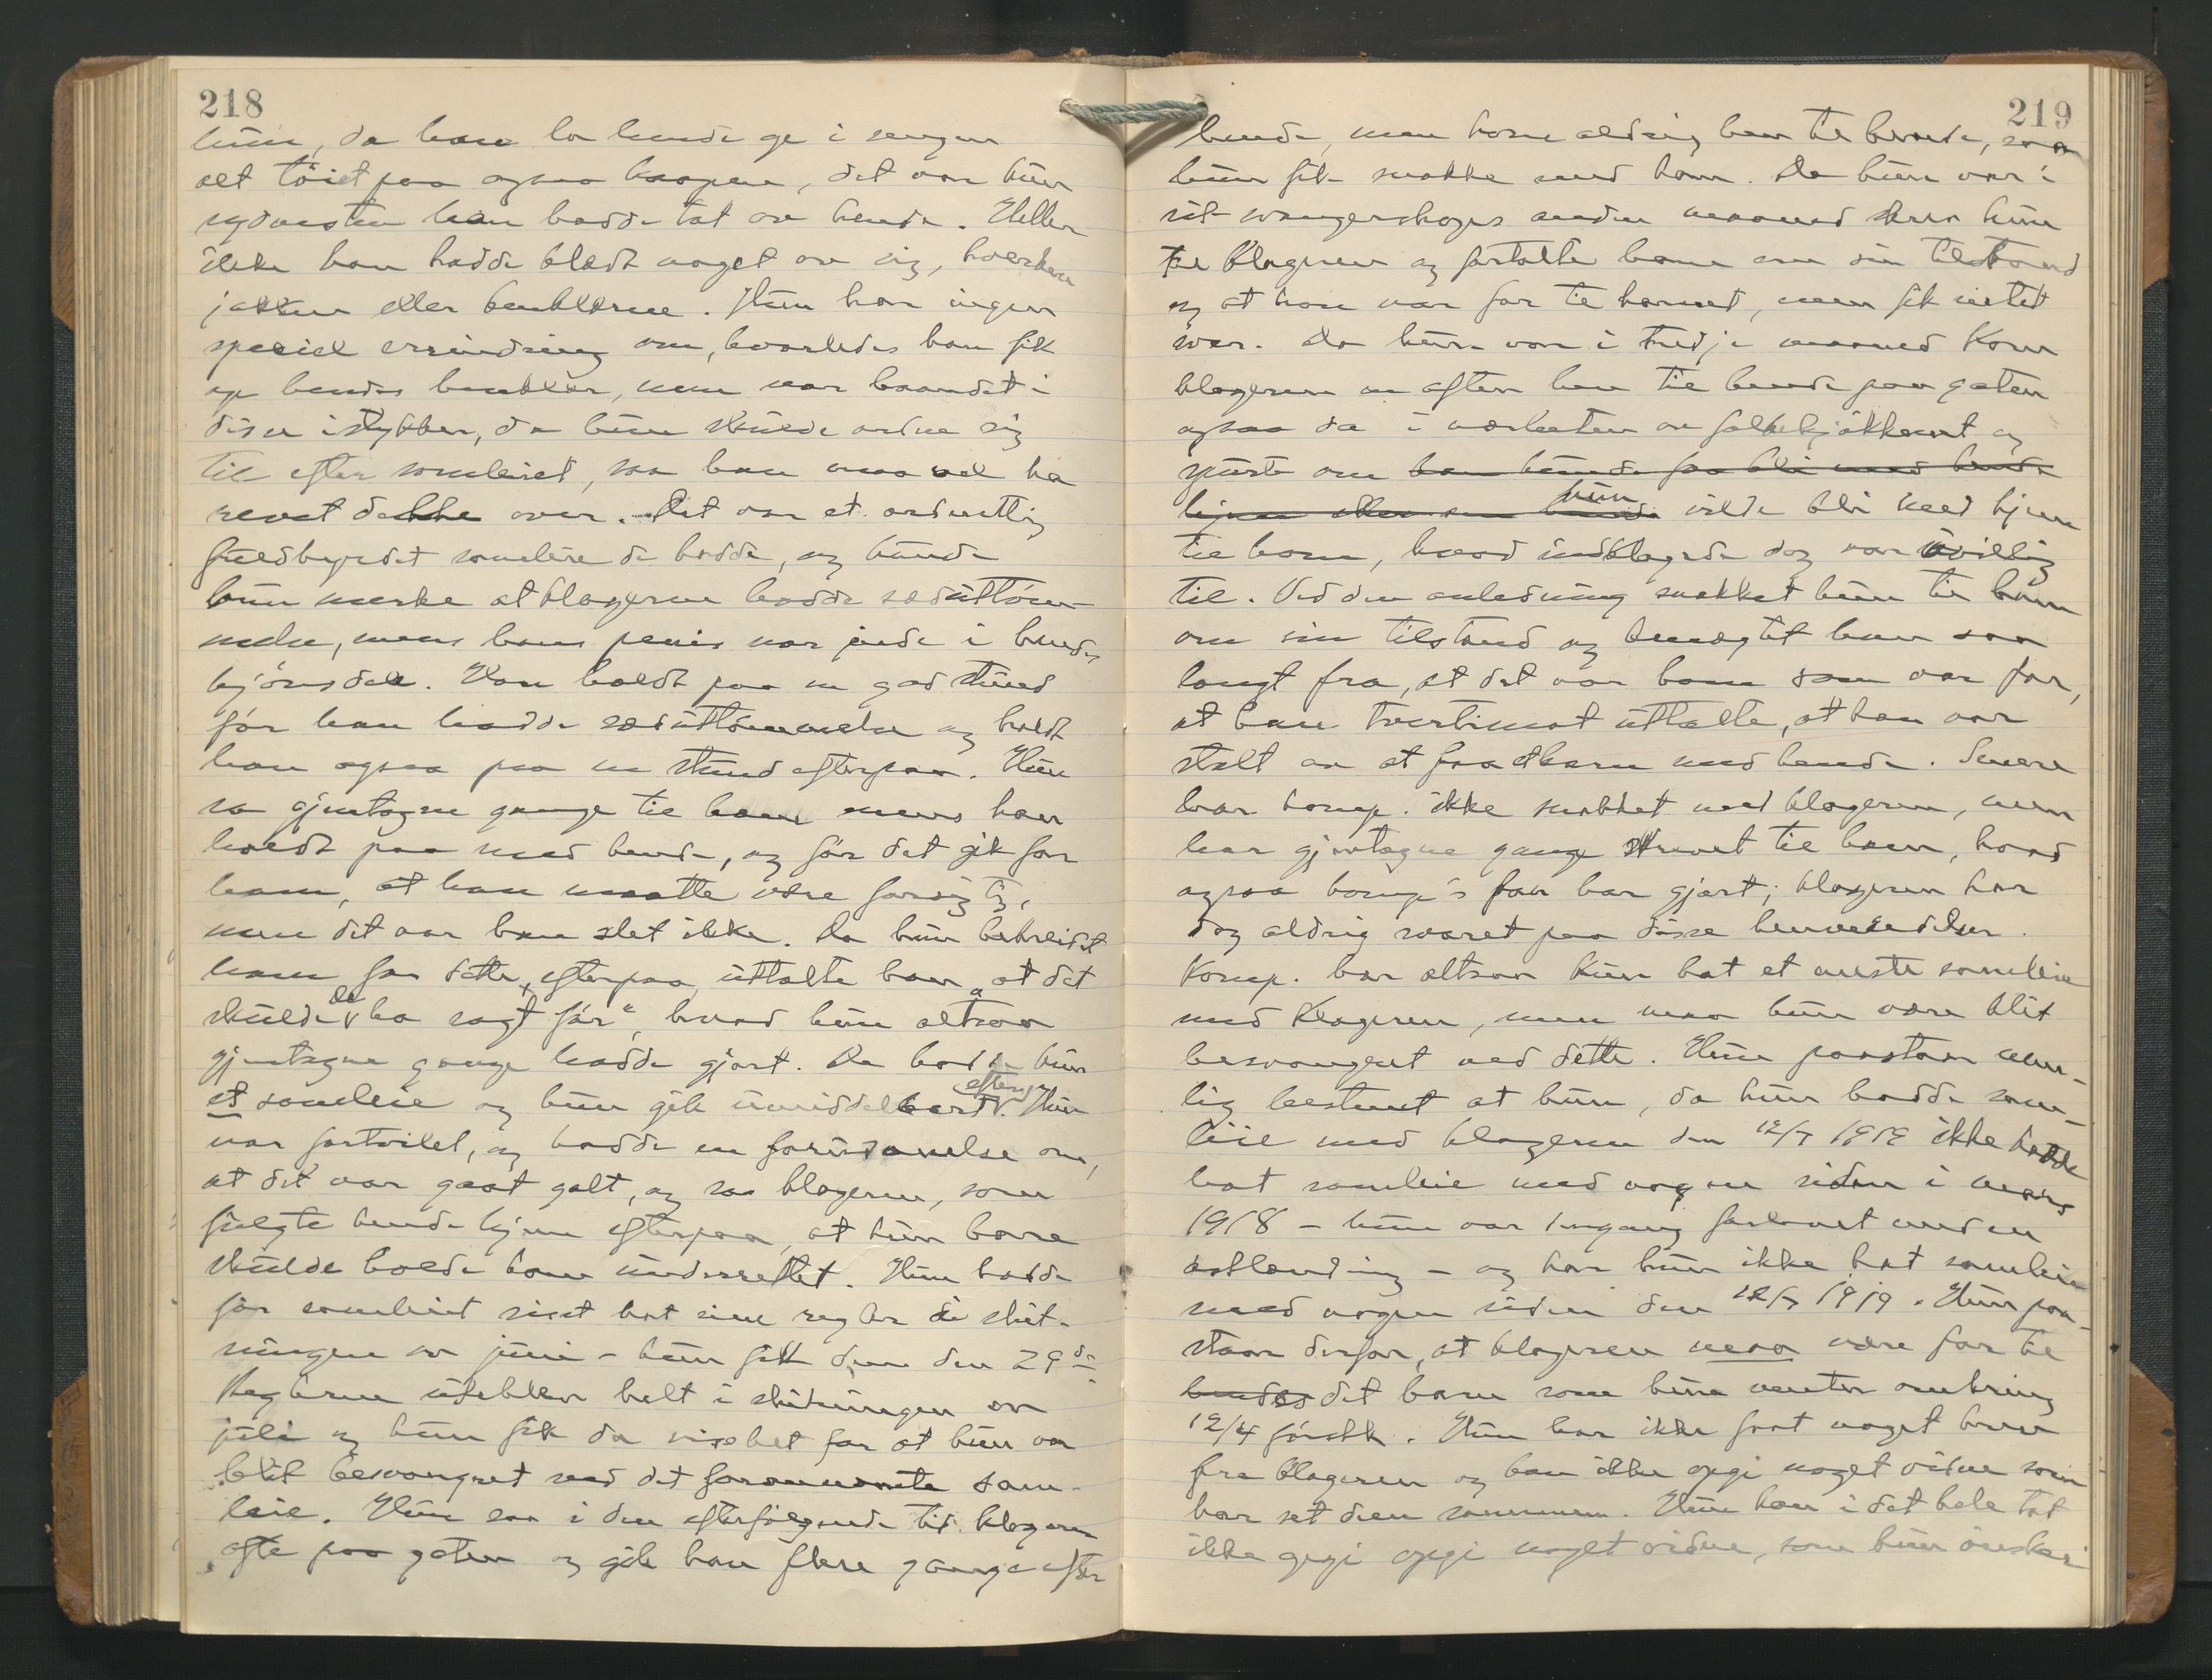 218
hun, da han la hende ge i sengen
alt töiet paa ogsaa kaapen, det var kun
sydvesten han hadde tat av hende. Heller
ikke han hadde klædt noget av sig, hverken
jakken eller benklærne. Hun har ingen
speciel erindring om, hvorledes han fik
op hendes benklær, men var baandet i
disse istykker, da hun skulde ordne sig
til efter samleiet, saa han maa vel ha
revet dette over. Det var et ordentlig
fuldbyrdet samleie de hadde, og kunde
hun merke at klageren hadde sæduttöm-
melse, mens hans penis var inde i hendes
kjönsdele. Han holdt paa en god stund
för han hadde sæduttömmelse og holdt
han ogsaa paa en stund efterpaa. Hun
sa gjentagne gange til ham mens han
holdt paa med hende, og för det gik for
ham, at han maatte være forsigtig,
men det var han slet ikke. Da hun bebreidet
ham for dette efterpaa, uttalte han „at det
skulde de ha sagt för“, hvad hun altsaa
gjentagne gange hadde gjort. De hadde kun
et samleie og hun gik umiddelbart efterpaa. Hun
var fortvilet, og hadde en forutanelse om,
at det var gaat galt, og sa klageren, som
fulgte hende hjem efterpaa, at hun bare
skulde holde ham underrettet. Hun hadde
för samleiet sidst hat sine regler i slut-
ningen av juni - hun fik dem den 29de.
Reglerne uteblev helt i slutningen av
juli og hun fik da vished for at hun var
blit besvangret ved det forannævnte sam-
leie. Hun saa i den efterfölgende tid klageren
ofte paa gaten og gik han flere gange efter
219
hende, men kom aldrig hen til hende, saa
hun fik snakke med ham. Da hun var i
sit svangerskaps anden maaned skrev hun
til klageren og fortalte ham om sin tilstand
og at han var far til barnet, men fik intet
svar. Da hun var i tredje maaned kom
klageren en aften hen til hende paa gaten
ogsaa da i nærheten av folkekjökkenet og
spurte om han kunde faa bli med hende
hjem eller om hun vilde bli med hjem
til ham, hvad indklagede dog var uvillig
til. Ved den anledning snakket hun til ham
om sin tilstand og benegtet han saa
langt fra, at det var ham som var far,
at han tvertimot uttalte, at han var
stolt av at faa et barn med hende. Senere
har komp. ikke snakket med klageren, men
har gjentagne gange skrevet til ham, hvad
ogsaa komp's far har gjort; klageren har
dog aldrig svaret paa disse henvendelser.
Komp. har altsaa kun hat et eneste samleie
med klageren, men maa hun være blit
besvangret ved dette. Hun paastaar nem-
lig bestemt at hun, da hun hadde sam-
leie med klageren den 12/7 1919 ikke hadde
hat samleie med nogen siden i mars
1918 - hun var dengang forlovet med en
östlending - og har hun ikke hat samleie
med nogen siden den 12/7 1919. Hun paa-
staar derfor, at klageren maa være far til
hendes det barn som hun venter omkring
12/4 förstk. Hun har ikke faat noget brev
fra klageren og kan ikke opgi noget vidne som
har set dem sammen. Hun kan i det hele tat
ikke gegi opgi noget vidne, som hun önsker